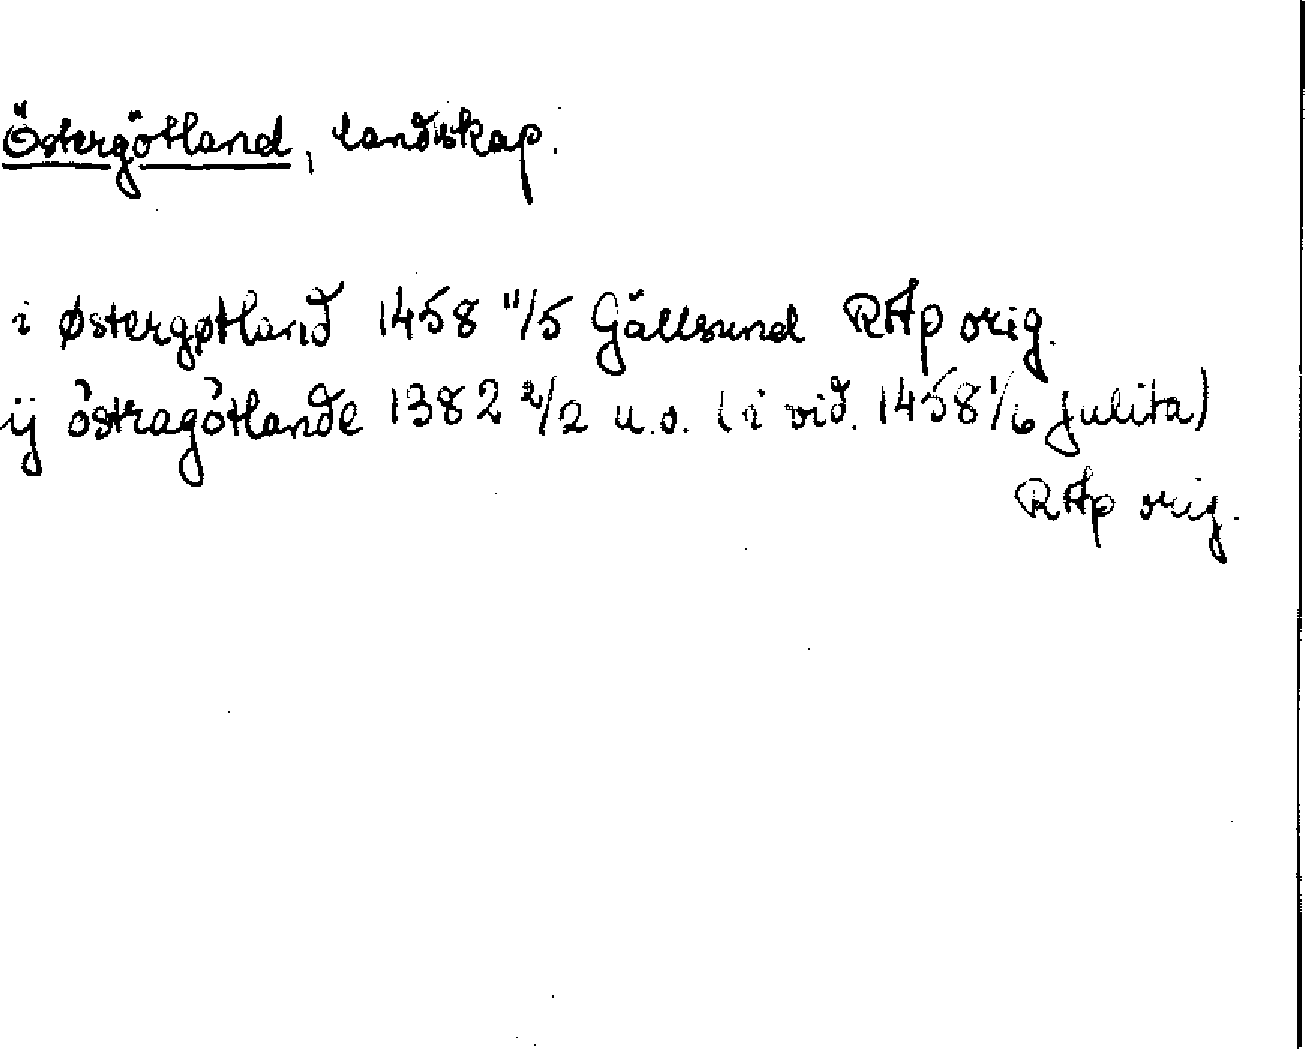 Östergötland, landskap.
i østergøtland 1458 11/5 Gällsund RAp orig.
ij östragötlande 1382 2/2 u.o. (i vid. 1458 1/6 Julita)
RAp orig.